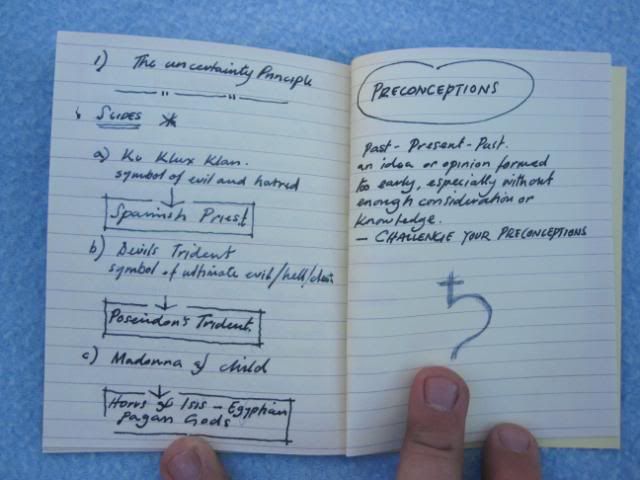 1) The uncertainty Principle
" "
SLIDES *
a) Ku Klux Klan.
symbol of evil and hatred
Spanish Priest
b) Devils Trident
symbol of ultimate evil/hell/
Poseidon's Trident.
c) Madonna & child
Horus & Isis - Egyptian
Pagan Gods
PRECONCEPTIONS
Past - Present - Past.
an idea or opinion formed
too early, especially without
enough consideration or
knowledge.
- CHALLENGE YOUR PRECONCEPTIONS